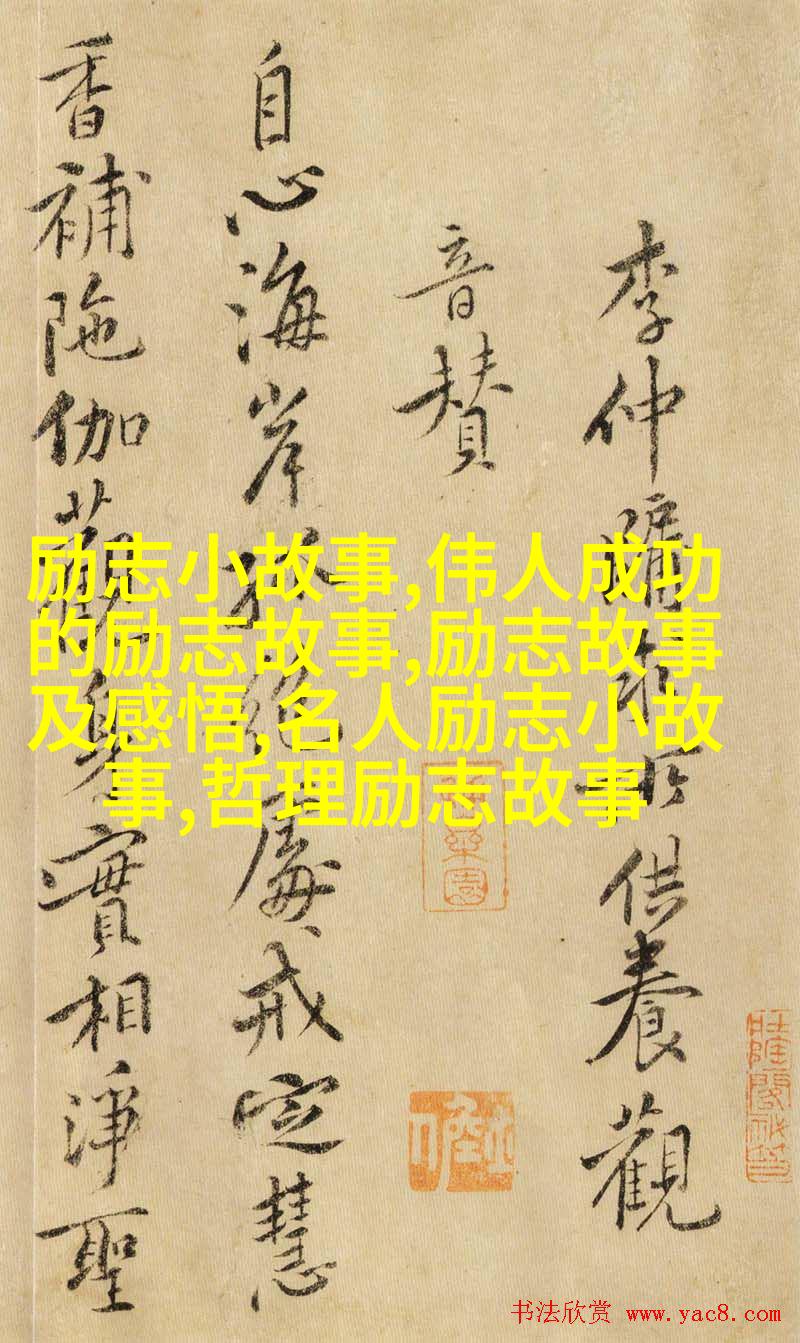 李仲賓求所供養觀
音賛
自心海岸孤絶處戒定慧
香補陁伽觀身實相淨聖
励志小故事,伟人成功
的励志故事,励志故事
及感悟,名人励志小故
事,哲理励志故事
书法欣赏 www.yac8.com